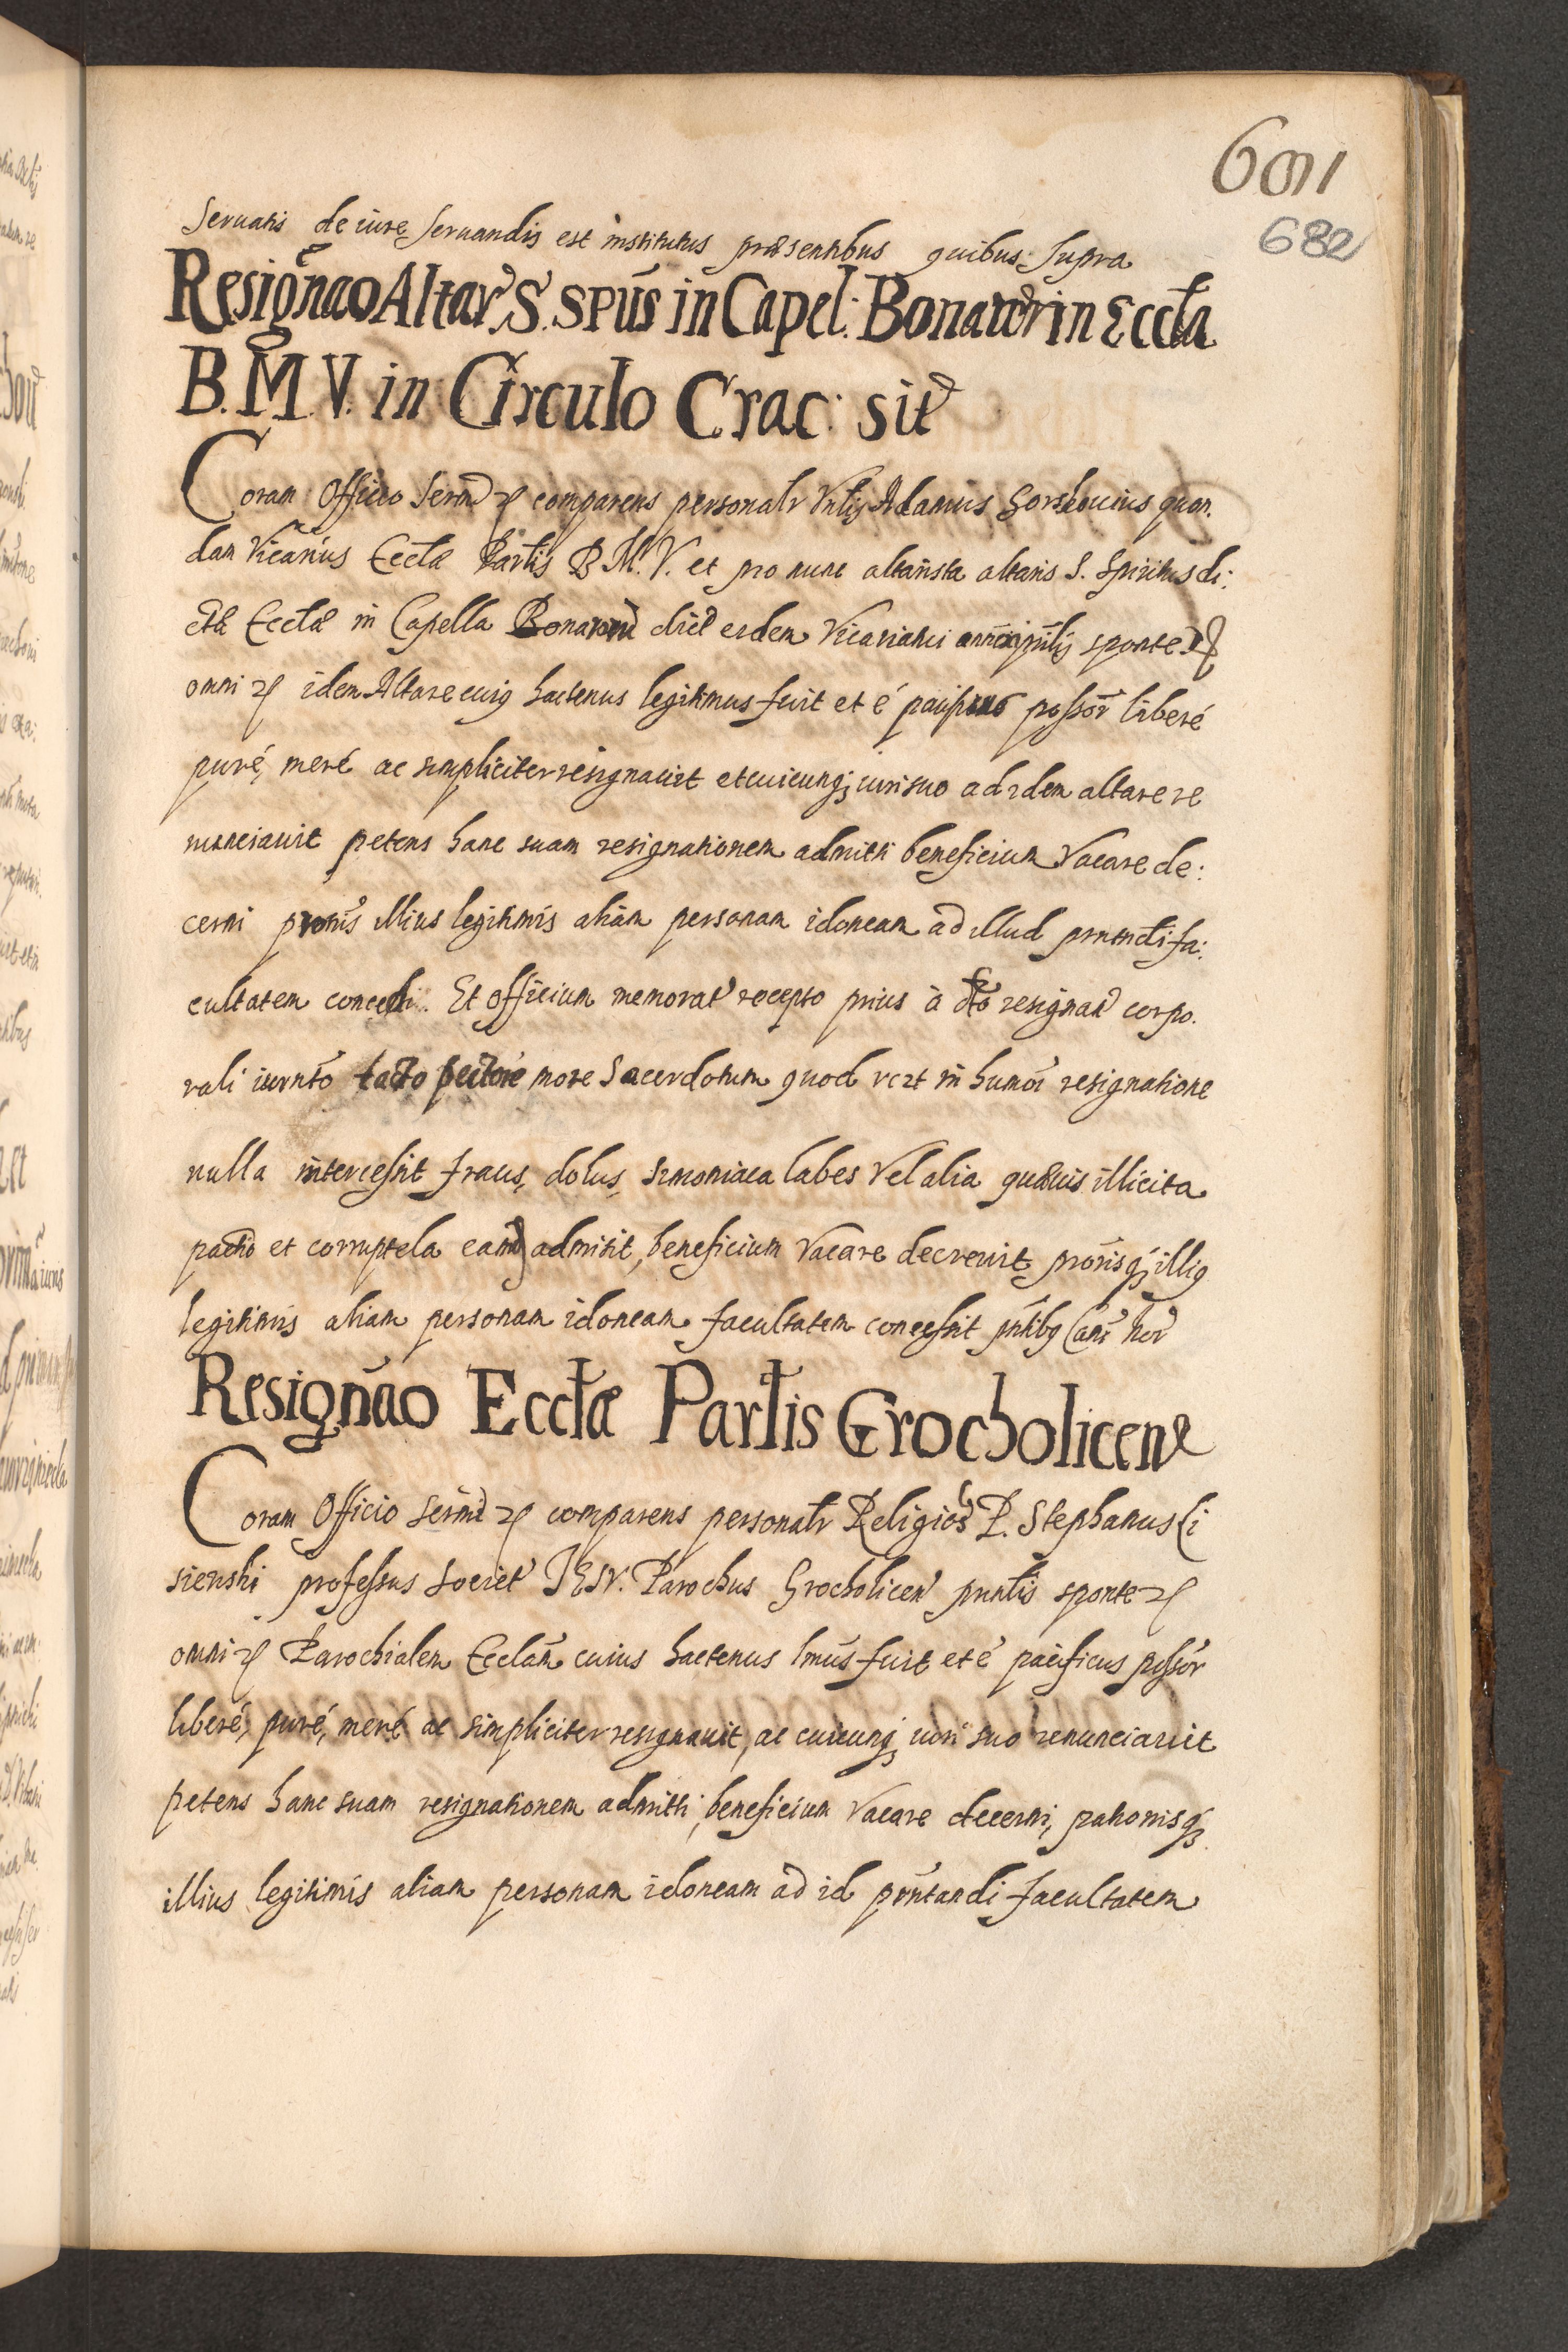 601
682
Seruatis de iure seruandis est institutus præsentibus quibus supra
Resignão Altar̃ S. SPũs in Capel: Bonaror̃ in Eccła
B. M. V. in Circulo Crac: sit̃
Coram Officio Serm̃ comparens personalr Vnlis Adamus quon:
dam Vicarius Eccłæ Partis B. M. V. et pro nunc altarista altaris S. Spiritus di:
ctæ Eccłæ in Capella Bonaror̃ eidem Vicariatui sponte
omni idem Altare cuiq hactenus legitimus fuit et é possõr liberé
puré, meré ac simpliciter resignauit et cuicunq; iuri suo ad idem altare re
nunciauit petens hanc suam resignationem admitti beneficium Vacare de:
cerni illius legitimis aliam personam idoneam ad illud prntndi fa:
cultatem concedi. Et officium memorat̃ recepto prius à dto resignañ corpo.
rali iurnto tacto pectore more Sacerdotum quod in humõi resignatione
nulla intercessit fraus, dolus, simoniaca labes Vel alia quæuis illicita
pactio et corruptela eand admisit, beneficium Vacare decreuit prõnisq; illiq
legitimis aliam personam idoneam facultatem concessit pntibq
Resignão Eccłæ Partis Grocholiceñ
Coram Officio Serm̃ comparens personalr Religios P. Stephanus Li
sienski professus Societ̃ IESV. Parochus Grocholiceñ prnlis sponte
omni Parochialem Ecclãm cuius hactenus lmus fuit et é pacificus possõr
liberé, puré, meré ac simpliciter resignauit, ac cuicunq; iuri suo renunciauit
petens hanc suam resignationem admitti, beneficium Vacare decerni, patronisq;
illius legitimis aliam personam idoneam ad id prñtandi facultatem